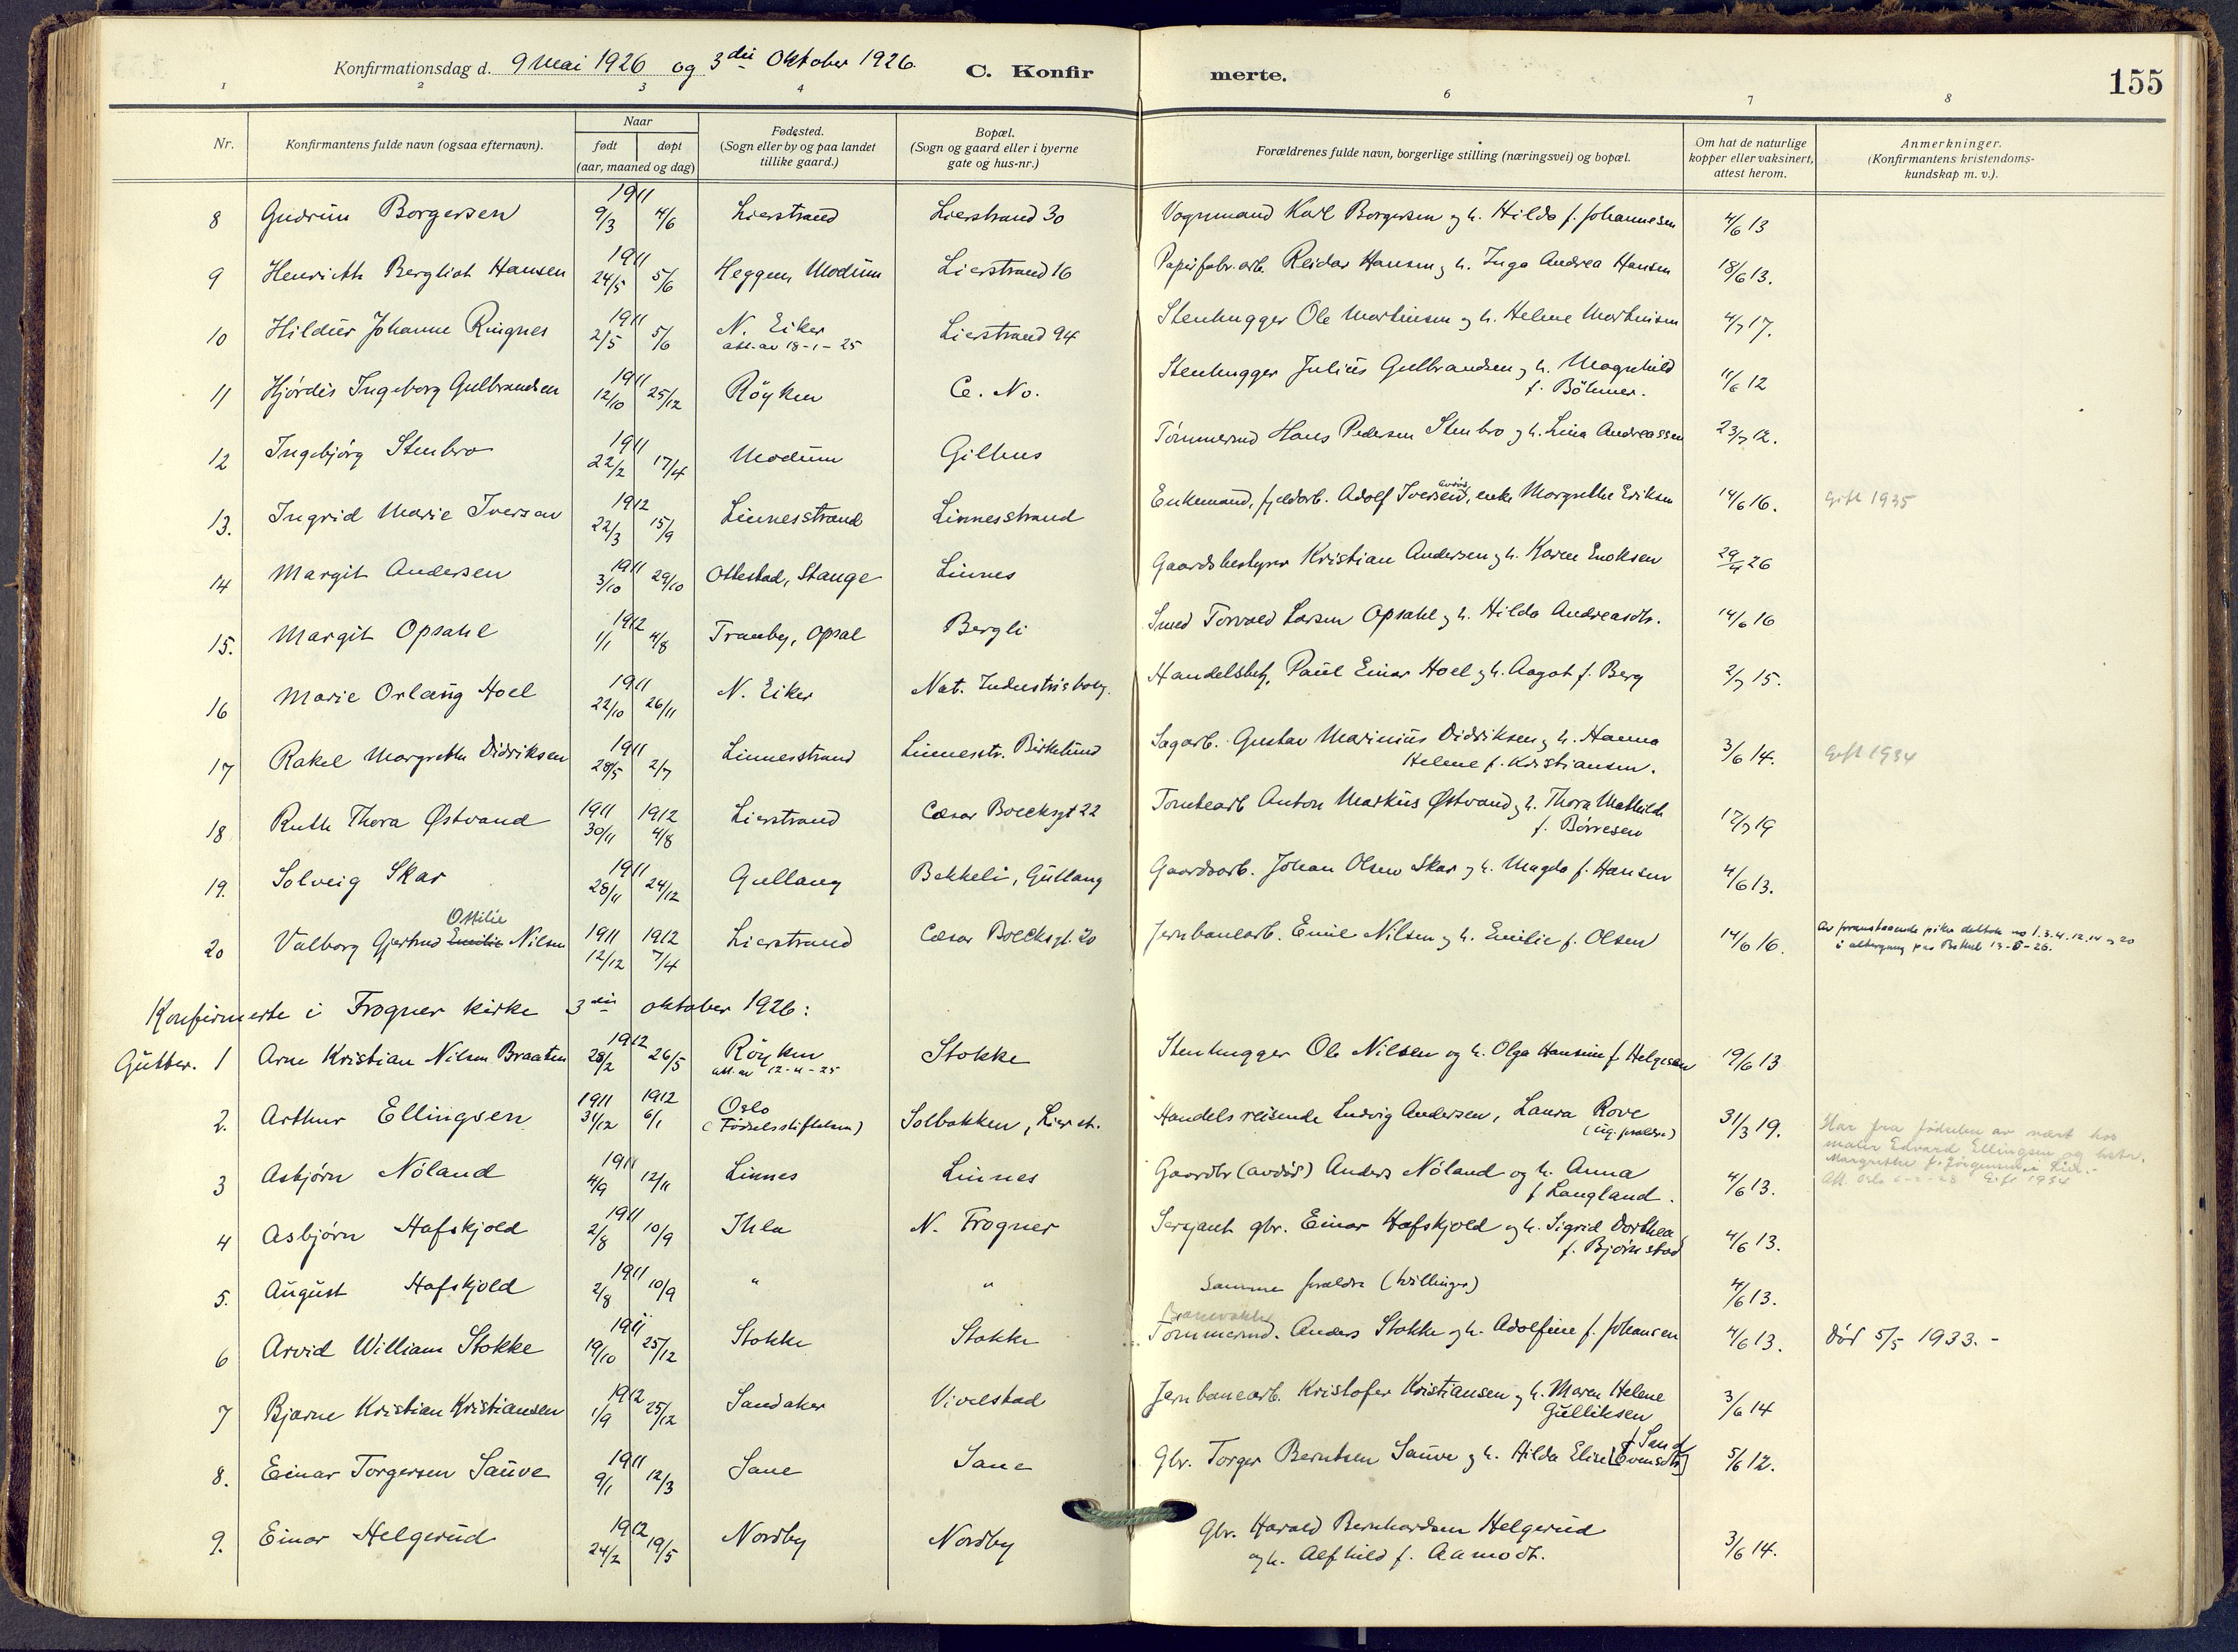 Konfirmationsdag d. 9 mai 1926 og 3die Oktober 1926. C. Konfirmerte. 155
1 2 3 4 6 7 8
Nr. Konfirmantens fulde navn (ogsaa efternavn). Naar født døpt (aar, maaned og dag) Fødested. (Sogn eller by og paa landet tillike gaard.) Bopæl. (Sogn og gaard eller i byerne gate og hus-nr.) Forældrenes fulde navn, borgerlige stilling (næringsvei) og bopæl. Om hat de naturlige kopper eller vaksinert, attest herom. Anmerkninger. (Konfirmantens kristendomskundskap m. v.).
8 Gudrun Borgersen 1911 9/3 4/6 Lierstrand Lierstrand 30 Vognmand Karl Borgersen og h. Hilda f. Johannesen 4/6 13
9 Henriette Bergliot Hansen 1911 24/5 5/6 Heggen, Modum Lierstrand 16 Papirfabr.arb. Reidar Hansen og h. Inga Andrea Hansen 18/6 13.
10 Hildur Johanne Ringnes 1911 2/5 5/6 N. Eiker Lierstrand 94 Stenhugger Ole Martinsen og h. Helene Martinsen 4/7 17.
att. av 18-1-25
11 Hjördis Ingeborg Gulbrandsen 1911 12/10 25/12 Röyken C. No. Stenhugger Julius Gulbrandsen og h. Magnhild 11/6 12
f. Böhmer.
12 Ingebjörg Stenbro 1911 22/2 17/4 Modum Gilhus Tömmermd Hans Pedersen Stenbro og h. Lina Andreassen 23/7 12.
13. Ingrid Marie Iversen 1912 22/3 15/9 Linnesstrand Linnesstrand Enkemand, fjeldarb. Adolf Iversen, enke Margrethe Eriksen 14/6 16. Gift 1935
14 Margit Andersen 1911 3/10 29/10 Ottestad, Stange Linnes Gaardsbestyrer Kristian Andersen og h. Karen Enoksen 29/4 26
15. Margit Opsahl 1912 1/1 4/8 Tranby, Opsal Bergli Smed Torvald Larsen Opsahl og h. Hilda Andreasdtr. 14/6 16
16 Marie Orlaug Hoel 1911 22/10 26/11 N. Eiker Nat. Industris bolig. Handelsbetj. Paul Einar Hoel og h. Aagot f. Berg 2/7 15.
17 Rakel Margrethe Didriksen 1911 28/5 2/7 Linnesstrand Linnesstr. Birkelund Sagarb. Gustav Marinius Didriksen og h. Hanna 3/6 14. Gift 1934
Helene f. Kristiansen.
18 Ruth Thora Østvand 1911 30/11 1912 4/8 Lierstrand Cæsar Boecksgt 22 Tomtearb Anton Markus Østvand og h. Thora Mathilde 17/7 19
f. Börresen
19. Solveig Skar 1911 28/11 24/12 Gullaug Bakkeli, Gullaug Gaardsarb. Johan Olsen Skar og h. Magda f. Hansen 4/6 13.
20 Valborg Gjertrud Emilie Ottilie Nilsen 1911 12/12 1912 7/4 Lierstrand Cæsar Boecksgt. 20 Jernbanearb. Emil Nilsen og h. Emilie f. Olsen 14/6 16. Av foranstaaende piker deltok no 1.3.4.12.14 og 20
i altergang
Konfirmerte i Frogner kirke 3die oktober 1926:
Gutter. 1 Arne Kristian Nilsen Braaten 1912 28/2 26/5 Röyken Stokke Stenhugger Ole Nilsen og h. Olga Hansine f. Helgesen 19/6 13
2. Arthur Ellingsen 1911 31/12 1912 6/1 Oslo (Födselsstiftelsen) Solbakken, Lier st. Handelsreisende Ludvig Andersen, Laura Rove 31/3 19. Har fra födselen av vært hos
(ug. foreldre) maler Edvard Ellingsen og hstr.
3 Asbjørn Nöland 1911 4/9 12/11 Linnes Linnes Gaardbr (avdöd) Anders Nöland og h. Anna 4/6 13.
f Langland.
4 Asbjörn Hafskjold 1911 2/8 10/9 Ihla N. Frogner Sersjant gbr. Einar Hafskjold og h. Sigrid Dorthea 4/6 13.
f. Björnstad
5. August Hafskjold 1911 2/8 10/9 " " Samme foreldre (tvillinger) 4/6 13.
6 Arvid William Stokke 1911 19/10 25/12 Stokke Stokke Tömmermd. Anders Stokke og h. Adolfine f. Johansen 4/6 13. död 5/5 1933.-
7 Bjarne Kristian Kristiansen 1912 1/9 25/12 Sandaker Vivelstad Jernbanearb. Kristofer Kristiansen og h. Maren Helene 3/6 14
Gulliksen
8. Einar Torgersen Sauve 1911 9/1 12/3 Saue Saue Gbr. Torger Berntsen Sauve og h. Hilda Elise [Evensdtr] f Sand 5/6 12.
9. Einar Helgerud 1912 24/2 19/5 Nordby Nordby Gbr. Harald Bernhardsen Helgerud 3/6 14.
og h. Alfhild f. Aamodt.